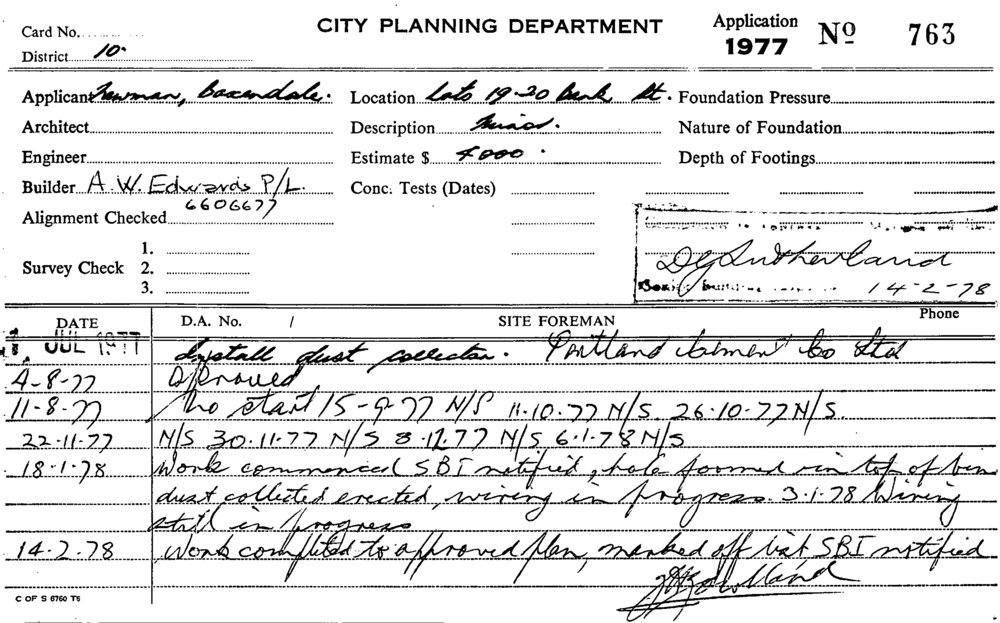 Card No.
CITY PLANNING DEPARTMENT
Application
1977
Nº 763
District 10.
Applicant Newman, Baxendale.
Location Lots 19-20 Bank St.
Foundation Pressure
Architect
Description
Nature of Foundation
Engineer
Estimate $ 4000.
Depth of Footings
Builder A. W. Edwards P/L.
6606677
Conc. Tests (Dates)
Alignment Checked
Survey Check
1.
2.
3.
14-2-78
DATE
D.A. No. /
SITE FOREMAN
Phone
JUL 1977
Install dust collector. Portland Cement Co Ltd
4-8-77
Approved
11-8-77
No start 15-9-77 N/S 11.10.77 N/S. 26.10.77 N/S.
22.11.77
N/S 30.11.77 N/S 8.12.77 N/S 6.1.78 N/S
18.1.78
Work commenced SBI notified, hole formed in top of bin
dust collected erected, wiring in progress. 3.1.78 Wiring
still in progress
14.2.78
Work completed to approved plan, marked off list SBI notified
C OF S 6760 T6